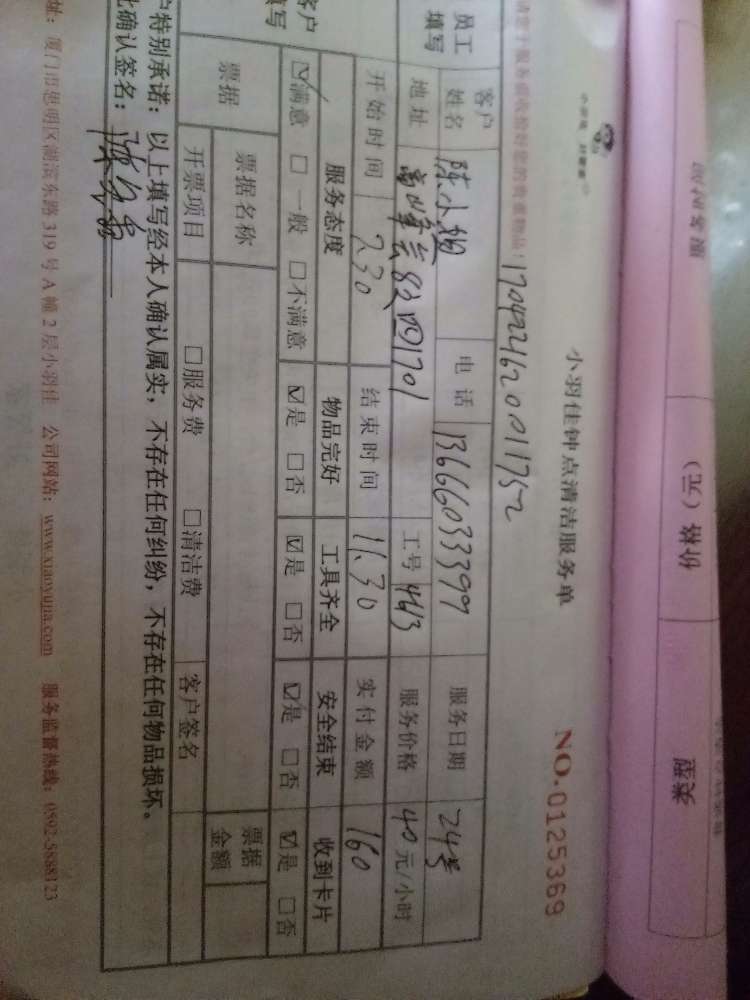 小羽佳钟点清洁服务单
NO.0125369
1704241620011752
员工填写
客户姓名 陈小姐 电话 13666033399 服务日期 24号
地址 工号 4613 服务价格 40元/小时
开始时间 2.30 结束时间 11.30 实付金额 160
服务态度 物品完好 工具齐全 安全结束 收到卡片
☑满意 □一般 □不满意 ☑是 □否 ☑是 □否 ☑是 □否 ☑是 □否
票据 票据名称 票据金额
开票项目 □服务费 □清洁费 客户签名
特别承诺：以上填写经本人确认属实，不存在任何纠纷，不存在任何物品损坏。
确认签名：
址：厦门市思明区湖滨东路319号A幢2层小羽佳 公司网站：www.xiaoyujia.com 服务监督热线：0592-5888123
价格（元）